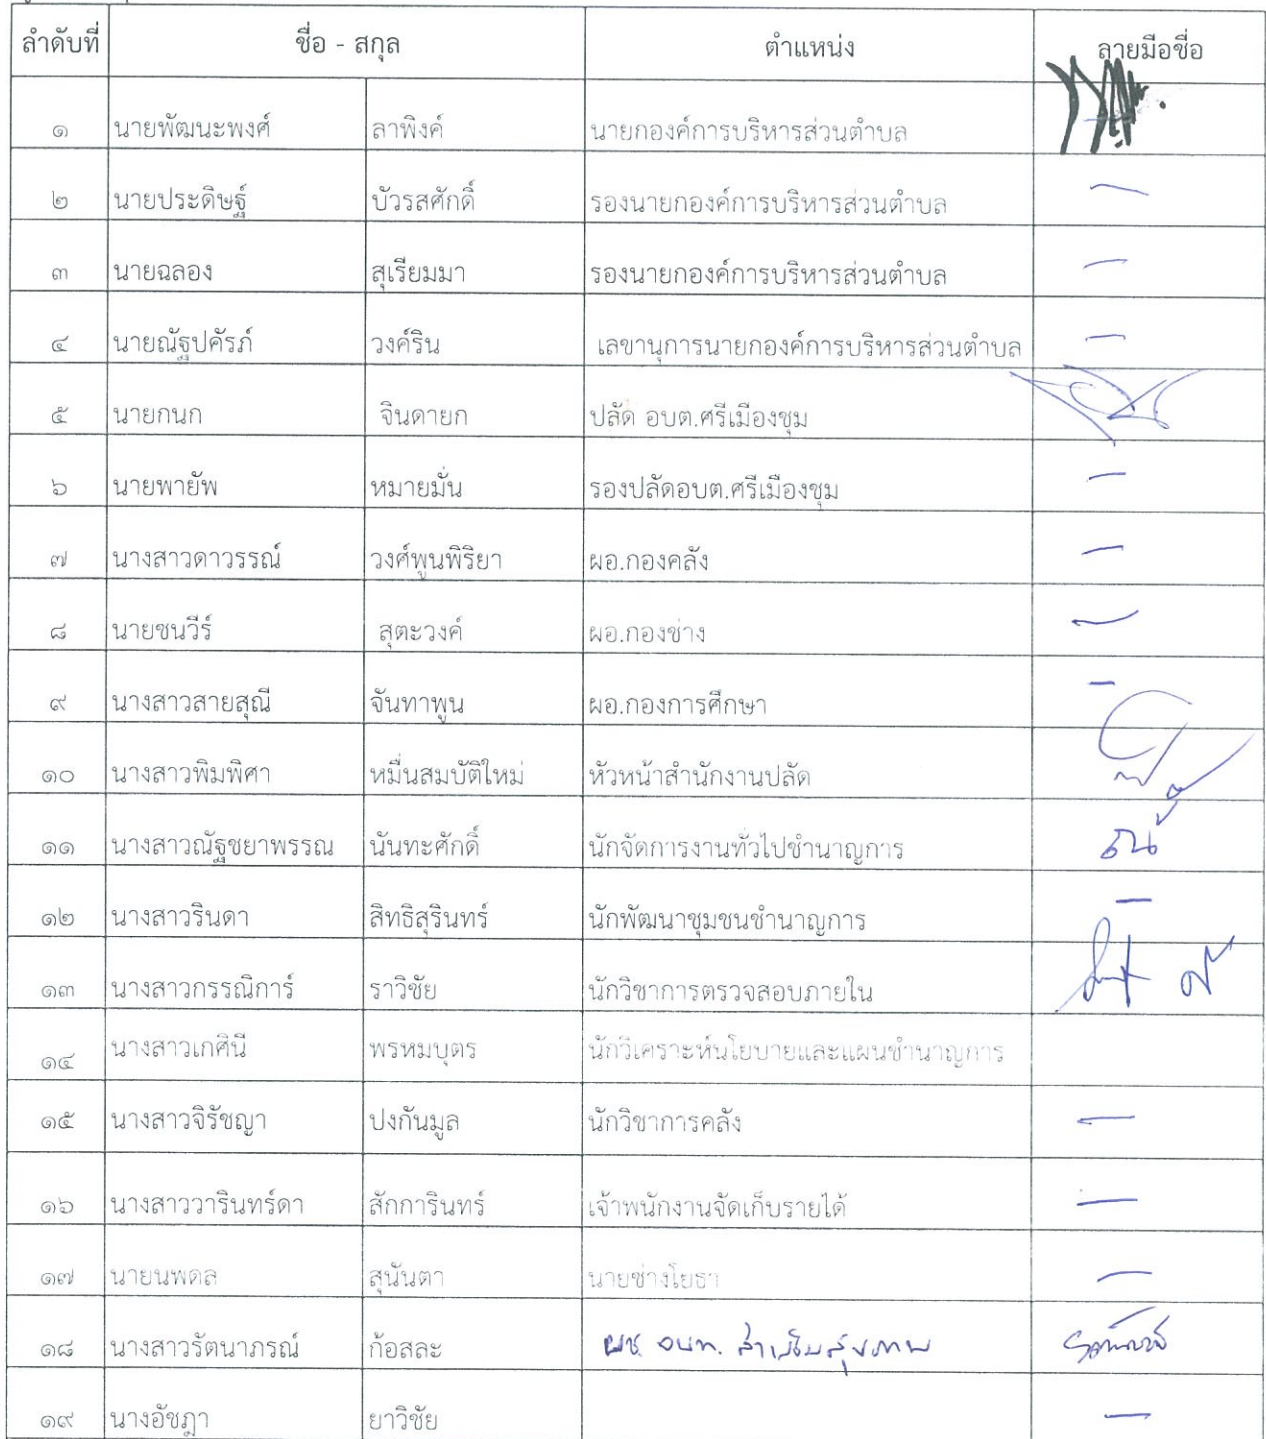 ลำดับที่ ชื่อ - สกุล ตำแหน่ง ลายมือชื่อ
๑ นายพัฒนะพงศ์ ลาพิงค์ นายกองค์การบริหารส่วนตำบล
๒ นายประดิษฐ์ บัวรสศักดิ์ รองนายกองค์การบริหารส่วนตำบล
๓ นายฉลอง สุเรียมมา รองนายกองค์การบริหารส่วนตำบล
๔ นายณัฐปคัรภ์ วงค์ริน เลขานุการนายกองค์การบริหารส่วนตำบล
๕ นายกนก จินดายก ปลัด อบต.ศรีเมืองชุม
๖ นายพายัพ หมายมั่น รองปลัดอบต.ศรีเมืองชุม
๗ นางสาวดาวรรณ์ วงศ์พูนพิริยา ผอ.กองคลัง
๘ นายชนวีร์ สุตะวงค์ ผอ.กองช่าง
๙ นางสาวสายสุณี จันทาพูน ผอ.กองการศึกษา
๑๐ นางสาวพิมพิศา หมื่นสมบัติใหม่ หัวหน้าสำนักงานปลัด
๑๑ นางสาวณัฐชยาพรรณ นันทะศักดิ์ นักจัดการงานทั่วไปชำนาญการ
๑๒ นางสาวรินดา สิทธิสุรินทร์ นักพัฒนาชุมชนชำนาญการ
๑๓ นางสาวกรรณิการ์ ราวิชัย นักวิชาการตรวจสอบภายใน
๑๔ นางสาวเกศินี พรหมบุตร นักวิเคราะห์นโยบายและแผนชำนาญการ
๑๕ นางสาวจิรัชญา ปงกันมูล นักวิชาการคลัง
๑๖ นางสาววารินทร์ดา สักการินทร์ เจ้าพนักงานจัดเก็บรายได้
๑๗ นายนพดล สุนันตา นายช่างโยธา
๑๘ นางสาวรัตนาภรณ์ ก้อสละ
๑๙ นางอัชฎา ยาวิชัย